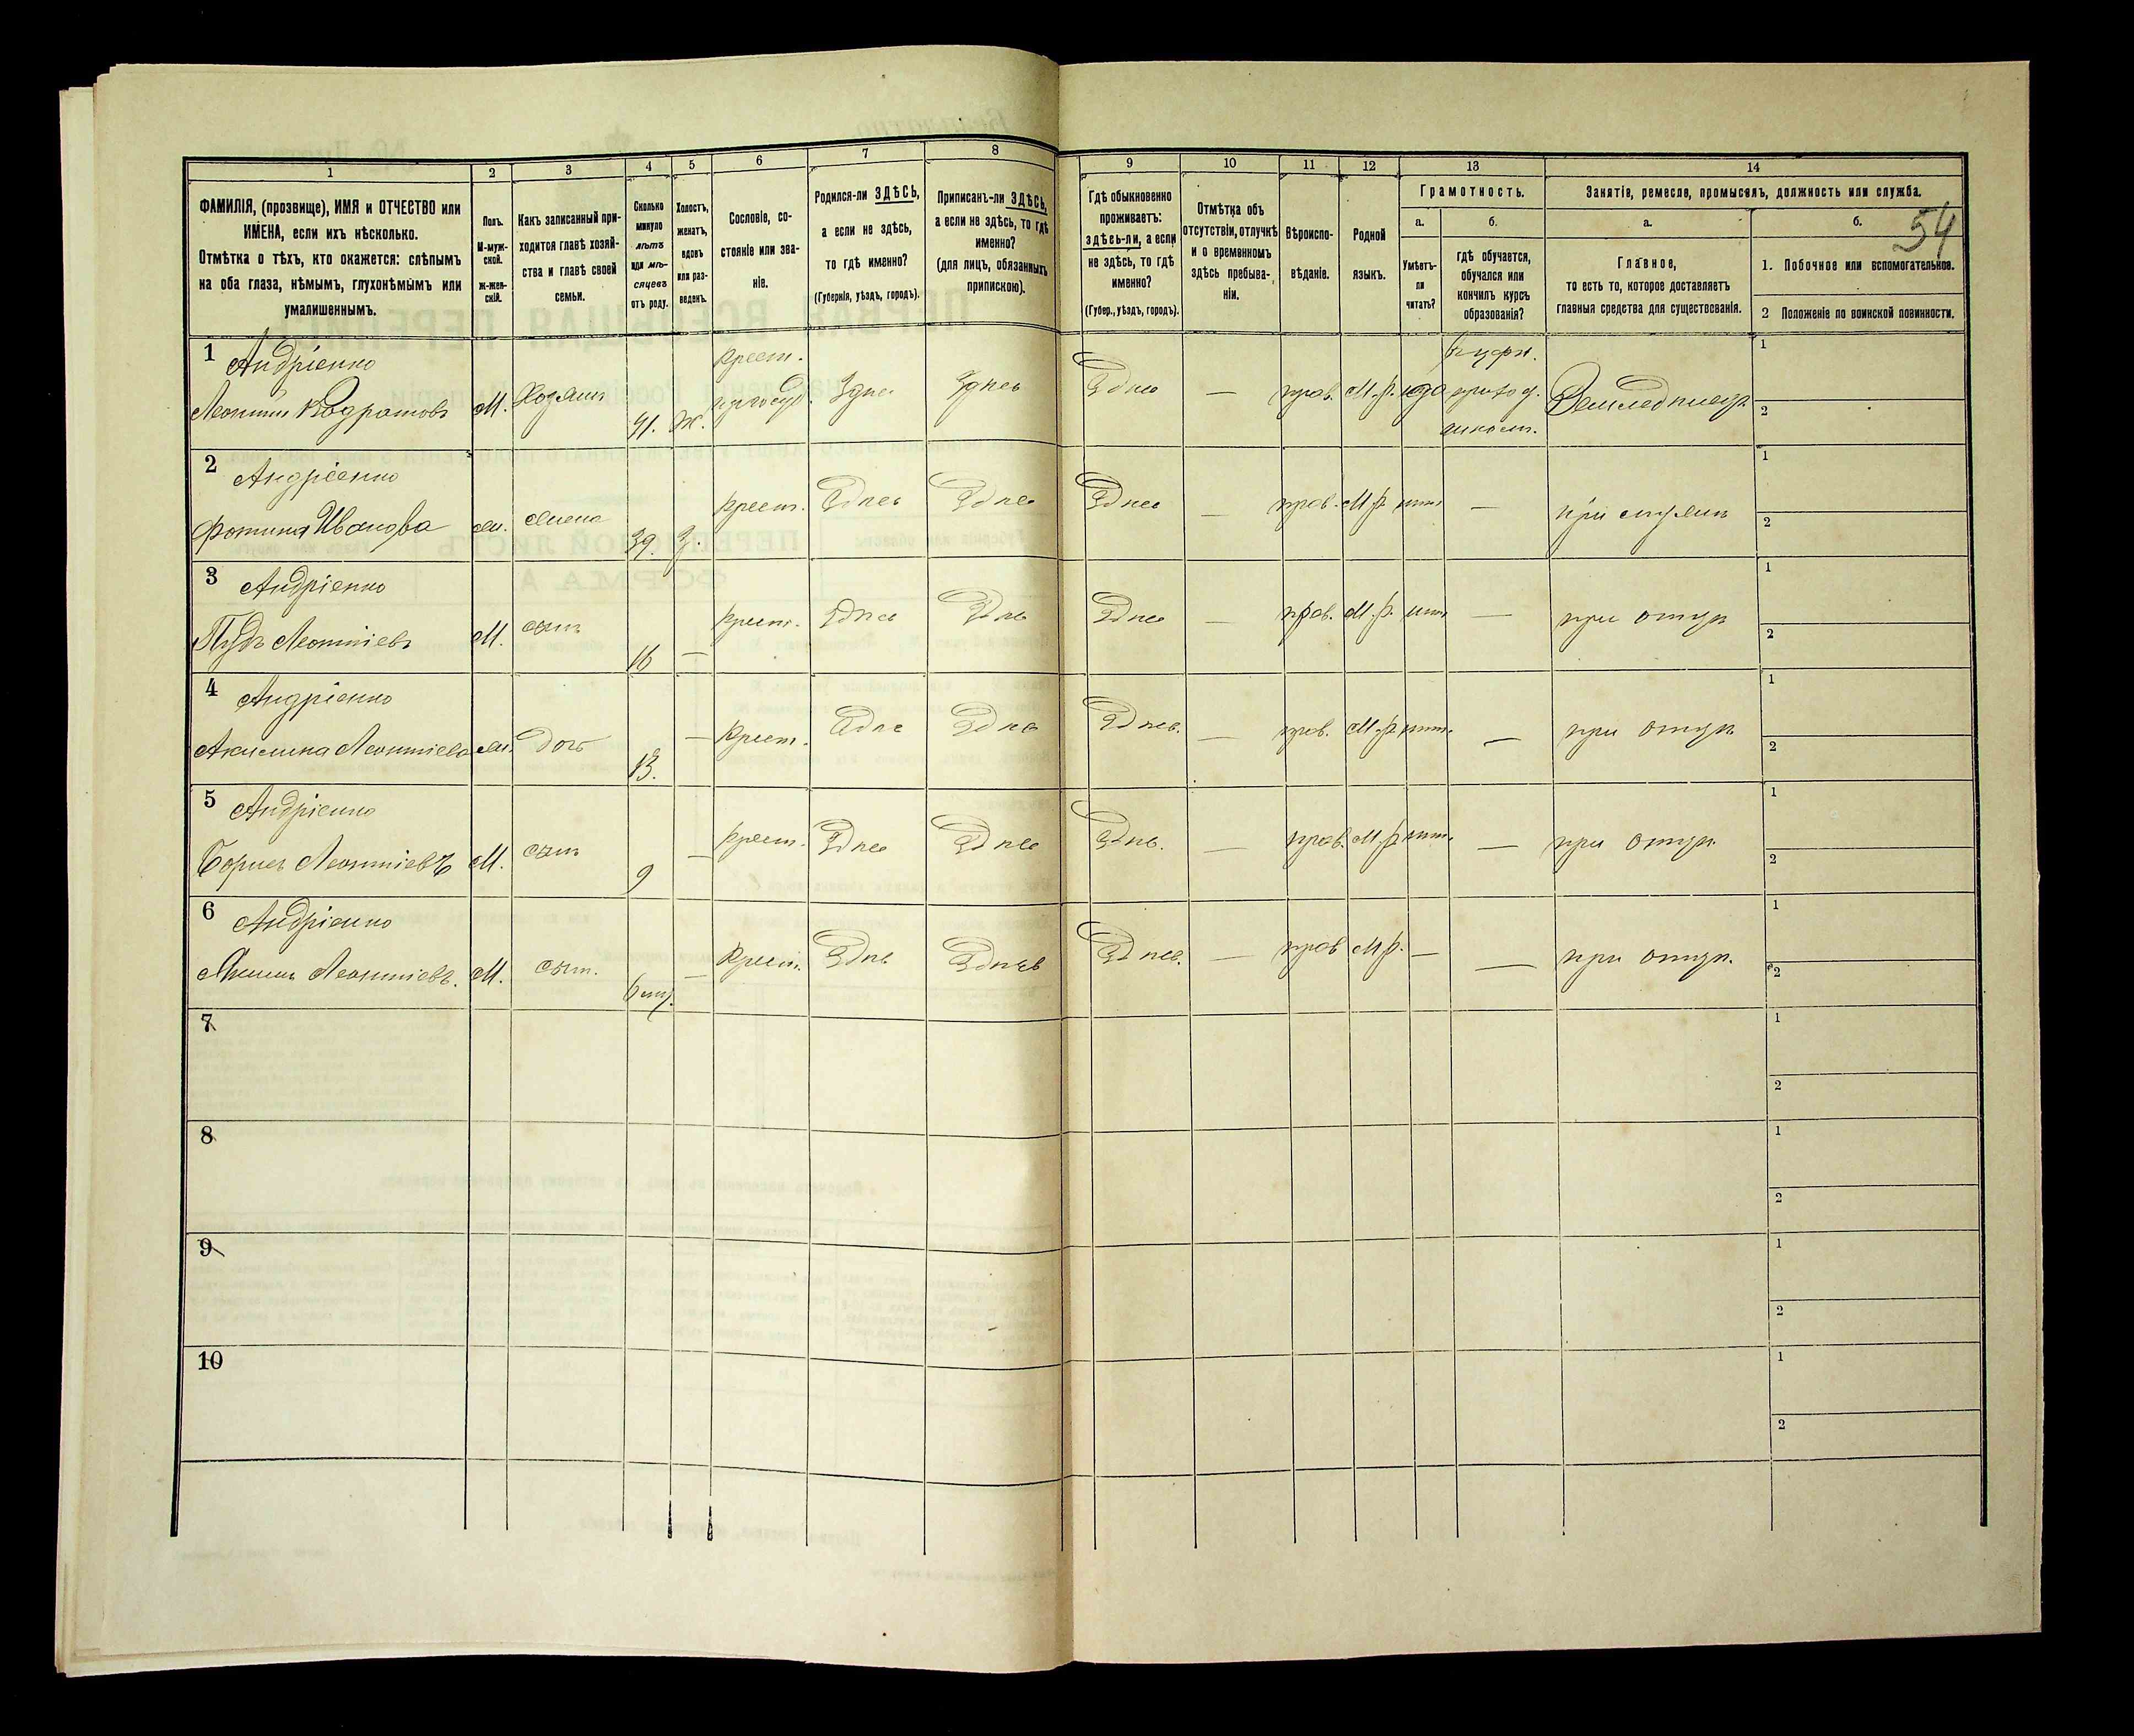 54
1 2 3 4 5 6 7 8 9 10 11 12 13 14
ФАМИЛІЯ, (прозвище), ИМЯ и ОТЧЕСТВО или
ИМЕНА, если ихъ нѣсколько.
Отмѣтка о тѣхъ, кто окажется: слѣпымъ
на оба глаза, нѣмымъ, глухонѣмымъ или
умалишеннымъ.
Полъ.
М-муж-
ской.
Ж-жен-
скій.
Какъ записанный при-
ходится главѣ хозяй-
ства и главѣ своей
семьи.
Сколько
минуло
лѣтъ
или мѣ-
сяцевъ
отъ роду.
Холостъ,
женатъ,
вдовъ
или раз-
веденъ.
Сословіе, со-
стояніе или зва-
ніе.
Родился-ли ЗДѢСЬ,
а если не здѣсь,
то гдѣ именно?
(Губернія, уѣздъ, городъ).
Приписанъ-ли ЗДѢСЬ,
а если не здѣсь, то гдѣ
именно?
(для лицъ, обязанныхъ
припискою).
Гдѣ обыкновенно
проживаетъ:
здѣсь-ли, а если
не здѣсь, то гдѣ
именно?
(Губер., уѣздъ, городъ).
Отмѣтка объ
отсутствіи, отлучкѣ
и о временномъ
здѣсь пребыва-
ніи.
Вѣроиспо-
вѣданіе.
Родной
языкъ.
Грамотность.
а.
Умѣетъ-
ли
читать?
б.
гдѣ обучается,
обучался или
кончилъ курсъ
образованія?
Занятіе, ремесло, промыселъ, должность или служба.
а.
Главное,
то есть то, которое доставляетъ
главныя средства для существованія.
б.
1. Побочное или вспомогательное.
2 Положеніе по воинской повинности.
1 Андріенко крест. 1
Леонтій М. Хозяинъ 41. Ж. Здѣсь Здѣсь Здѣсь — прав. М.р. да Земледѣлецъ 2
2 Андріенко 1
Фотинія Иванова жена 39. З. крест. Здѣсь Здѣсь Здѣсь — прав. М.р. нѣт — при мужѣ 2
3 Андріенко 1
Леонтіевъ М. сынъ 16 — крест. Здѣсь Здѣсь Здѣсь — прав. М.р. нѣт — при отцѣ 2
4 Андріенко 1
Акилина Леонтіева дочь 13. — Крест. Здѣсь Здѣсь Здѣсь. — прав. М.р. нѣт. — при отцѣ 2
5 Андріенко 1
Борисъ Леонтіевъ М. сынъ 9 — крест. Здѣсь Здѣсь Здѣсь. — прав. М.р. нѣт. — при отцѣ 2
6 Андріенко 1
Леонтіевъ. М. сын. — Крест. Здѣсь Здѣсь Здѣсь. — прав М.р. — — при отцѣ. 2
7 1
2
8 1
2
9 1
2
10 1
2